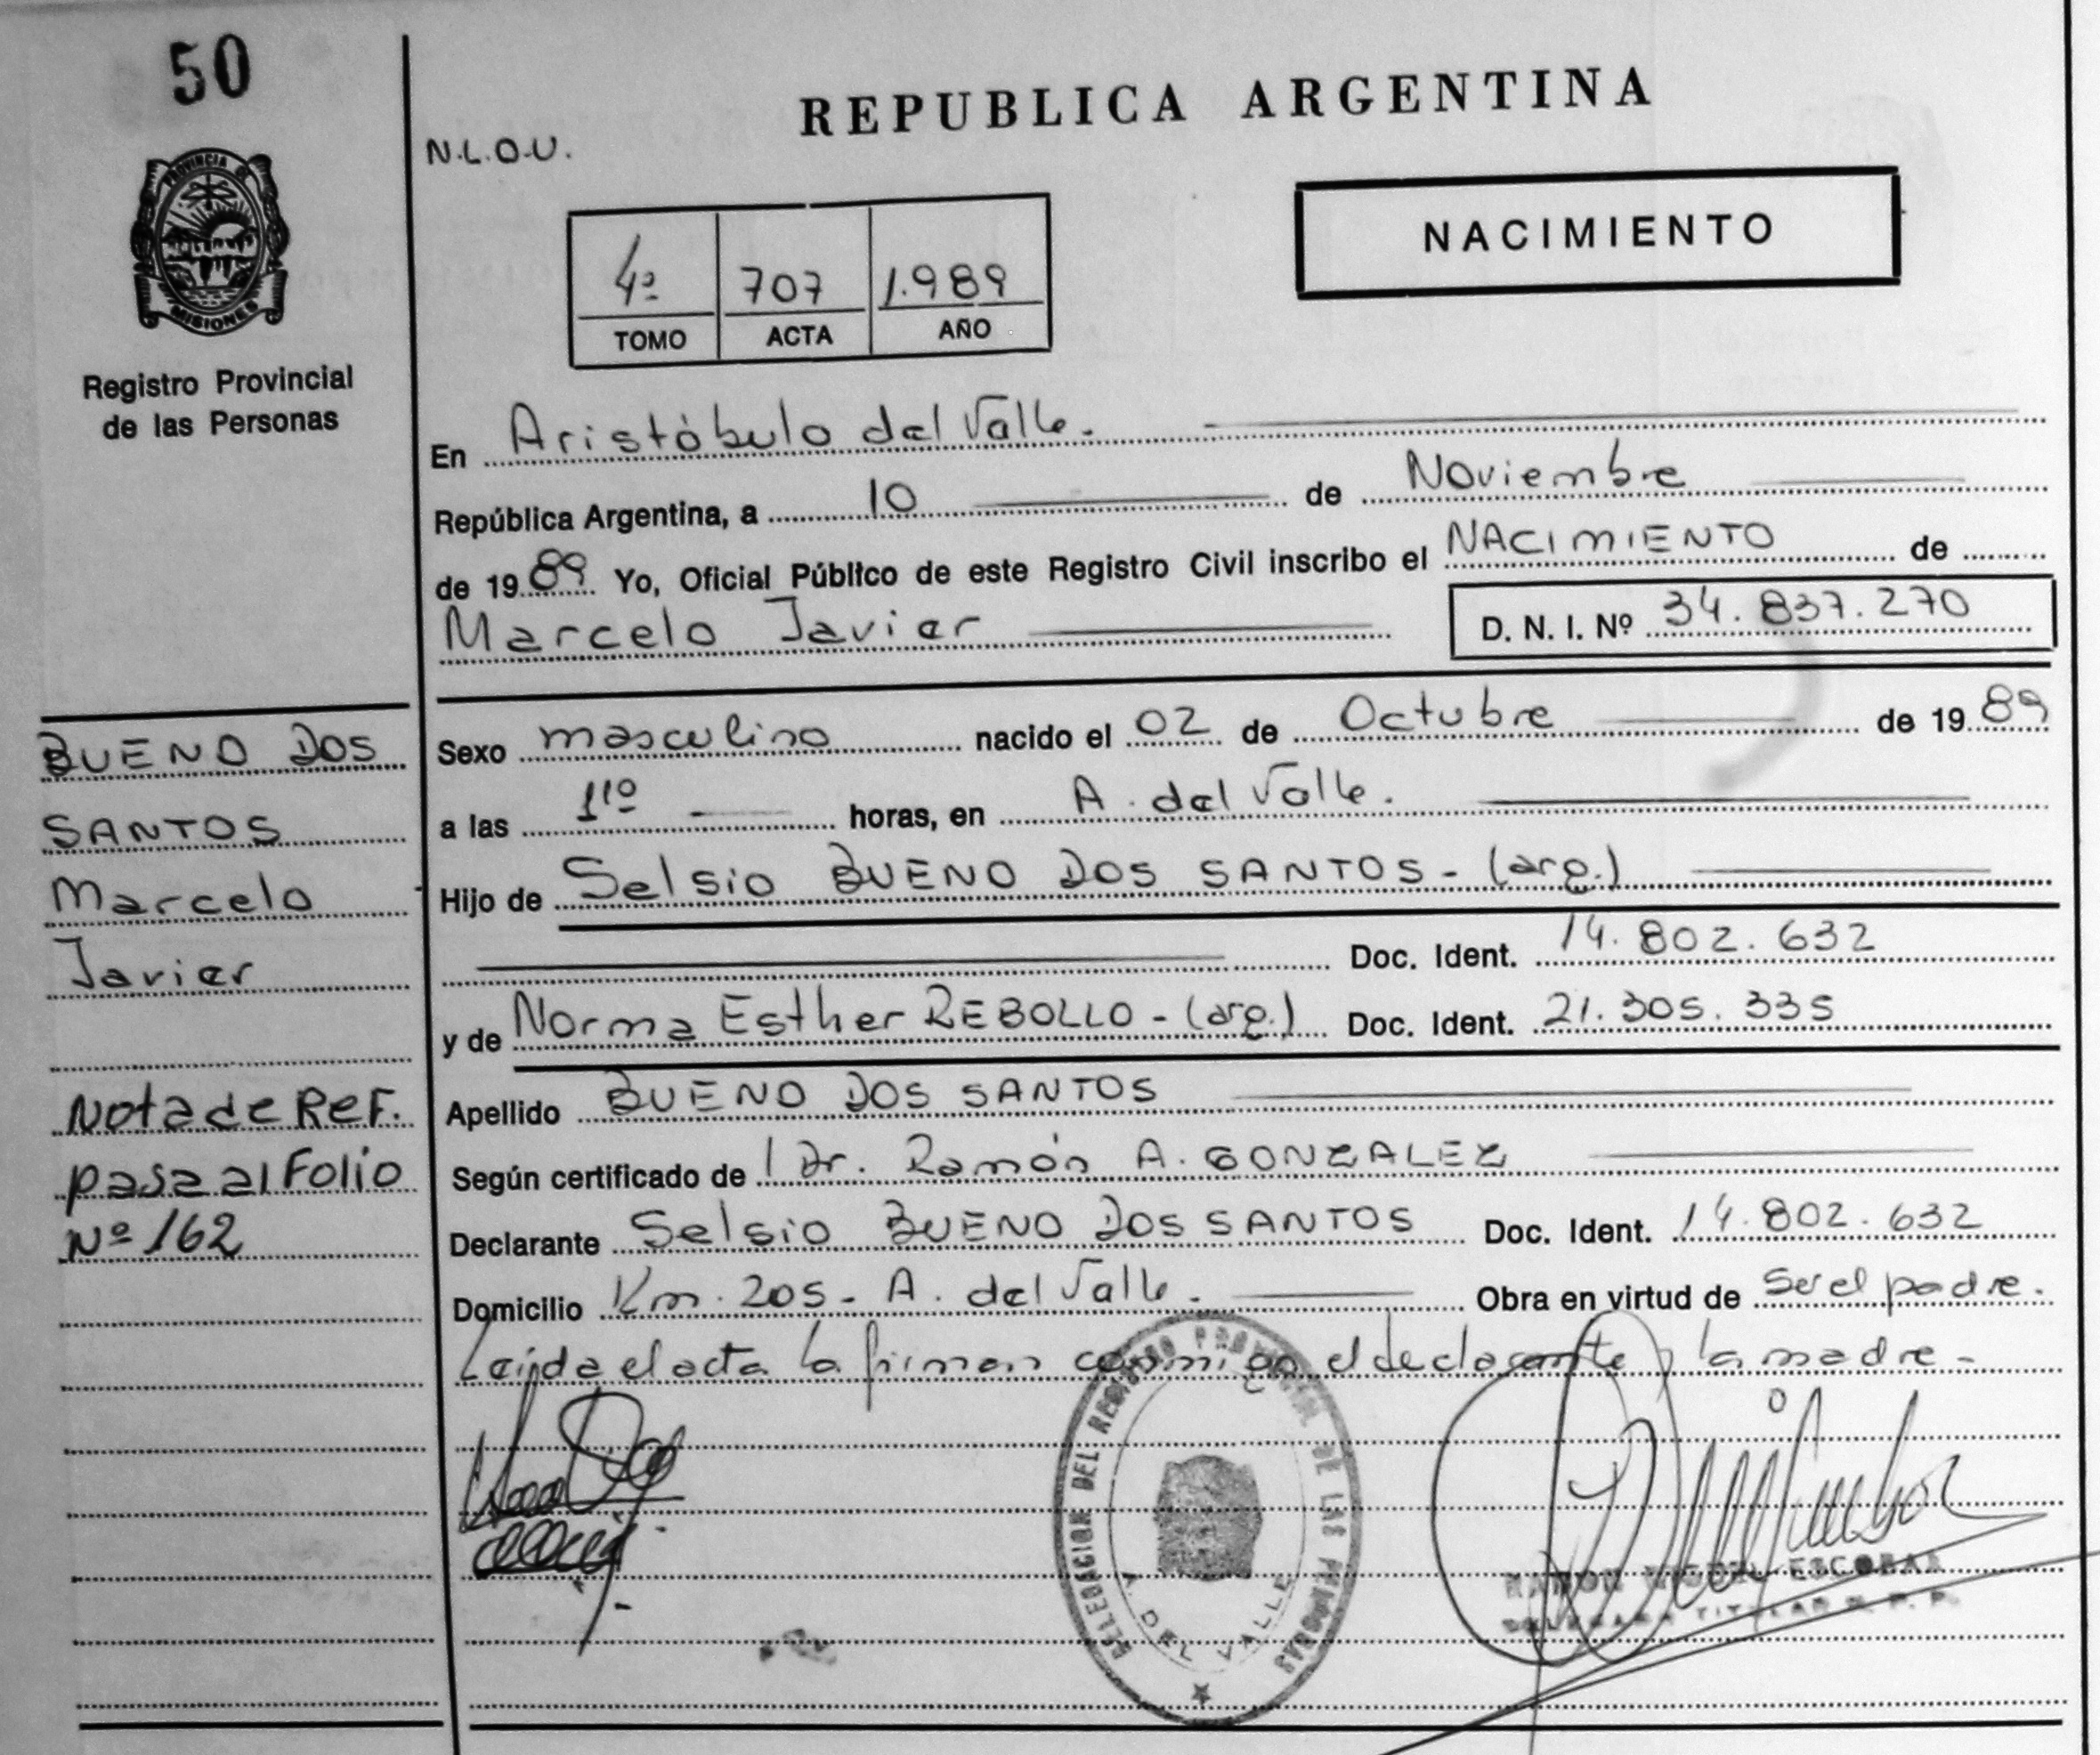 50
PROVINCIA DE
MISIONES
Registro Provincial
de las Personas
BUENO DOS
SANTOS
Marcelo
Javier
Nota de Ref.
pasa al Folio
Nº 162
N.L.O.U.
REPUBLICA ARGENTINA
NACIMIENTO
4º 707 1.989
TOMO ACTA AÑO
En Aristóbulo del Valle.
República Argentina, a 10 de Noviembre
de 1989 Yo, Oficial Público de este Registro Civil inscribo el NACIMIENTO de
Marcelo Javier D. N. I. Nº 34.837.270
Sexo masculino nacido el 02 de Octubre de 1989
a las horas, en A. del Valle.
Hijo de Selsio BUENO DOS SANTOS - (arg.)
Doc. Ident. 14.802.632
y de Norma Esther REBOLLO - (arg.) Doc. Ident. 21.305.335
Apellido BUENO DOS SANTOS
Según certificado de Dr. Ramón A. GONZALEZ
Declarante Selsio BUENO DOS SANTOS Doc. Ident. 14.802.632
Domicilio Km. 205 - A. del Valle. Obra en virtud de ser el padre.
Leída el acta la firman conmigo el declarante y la madre -
DELEGACION DEL REGISTRO PROVINCIAL DE LAS PERSONAS
A. DEL VALLE
RAMON MIGUEL ESCOBAR
TITULAR R. P. P.